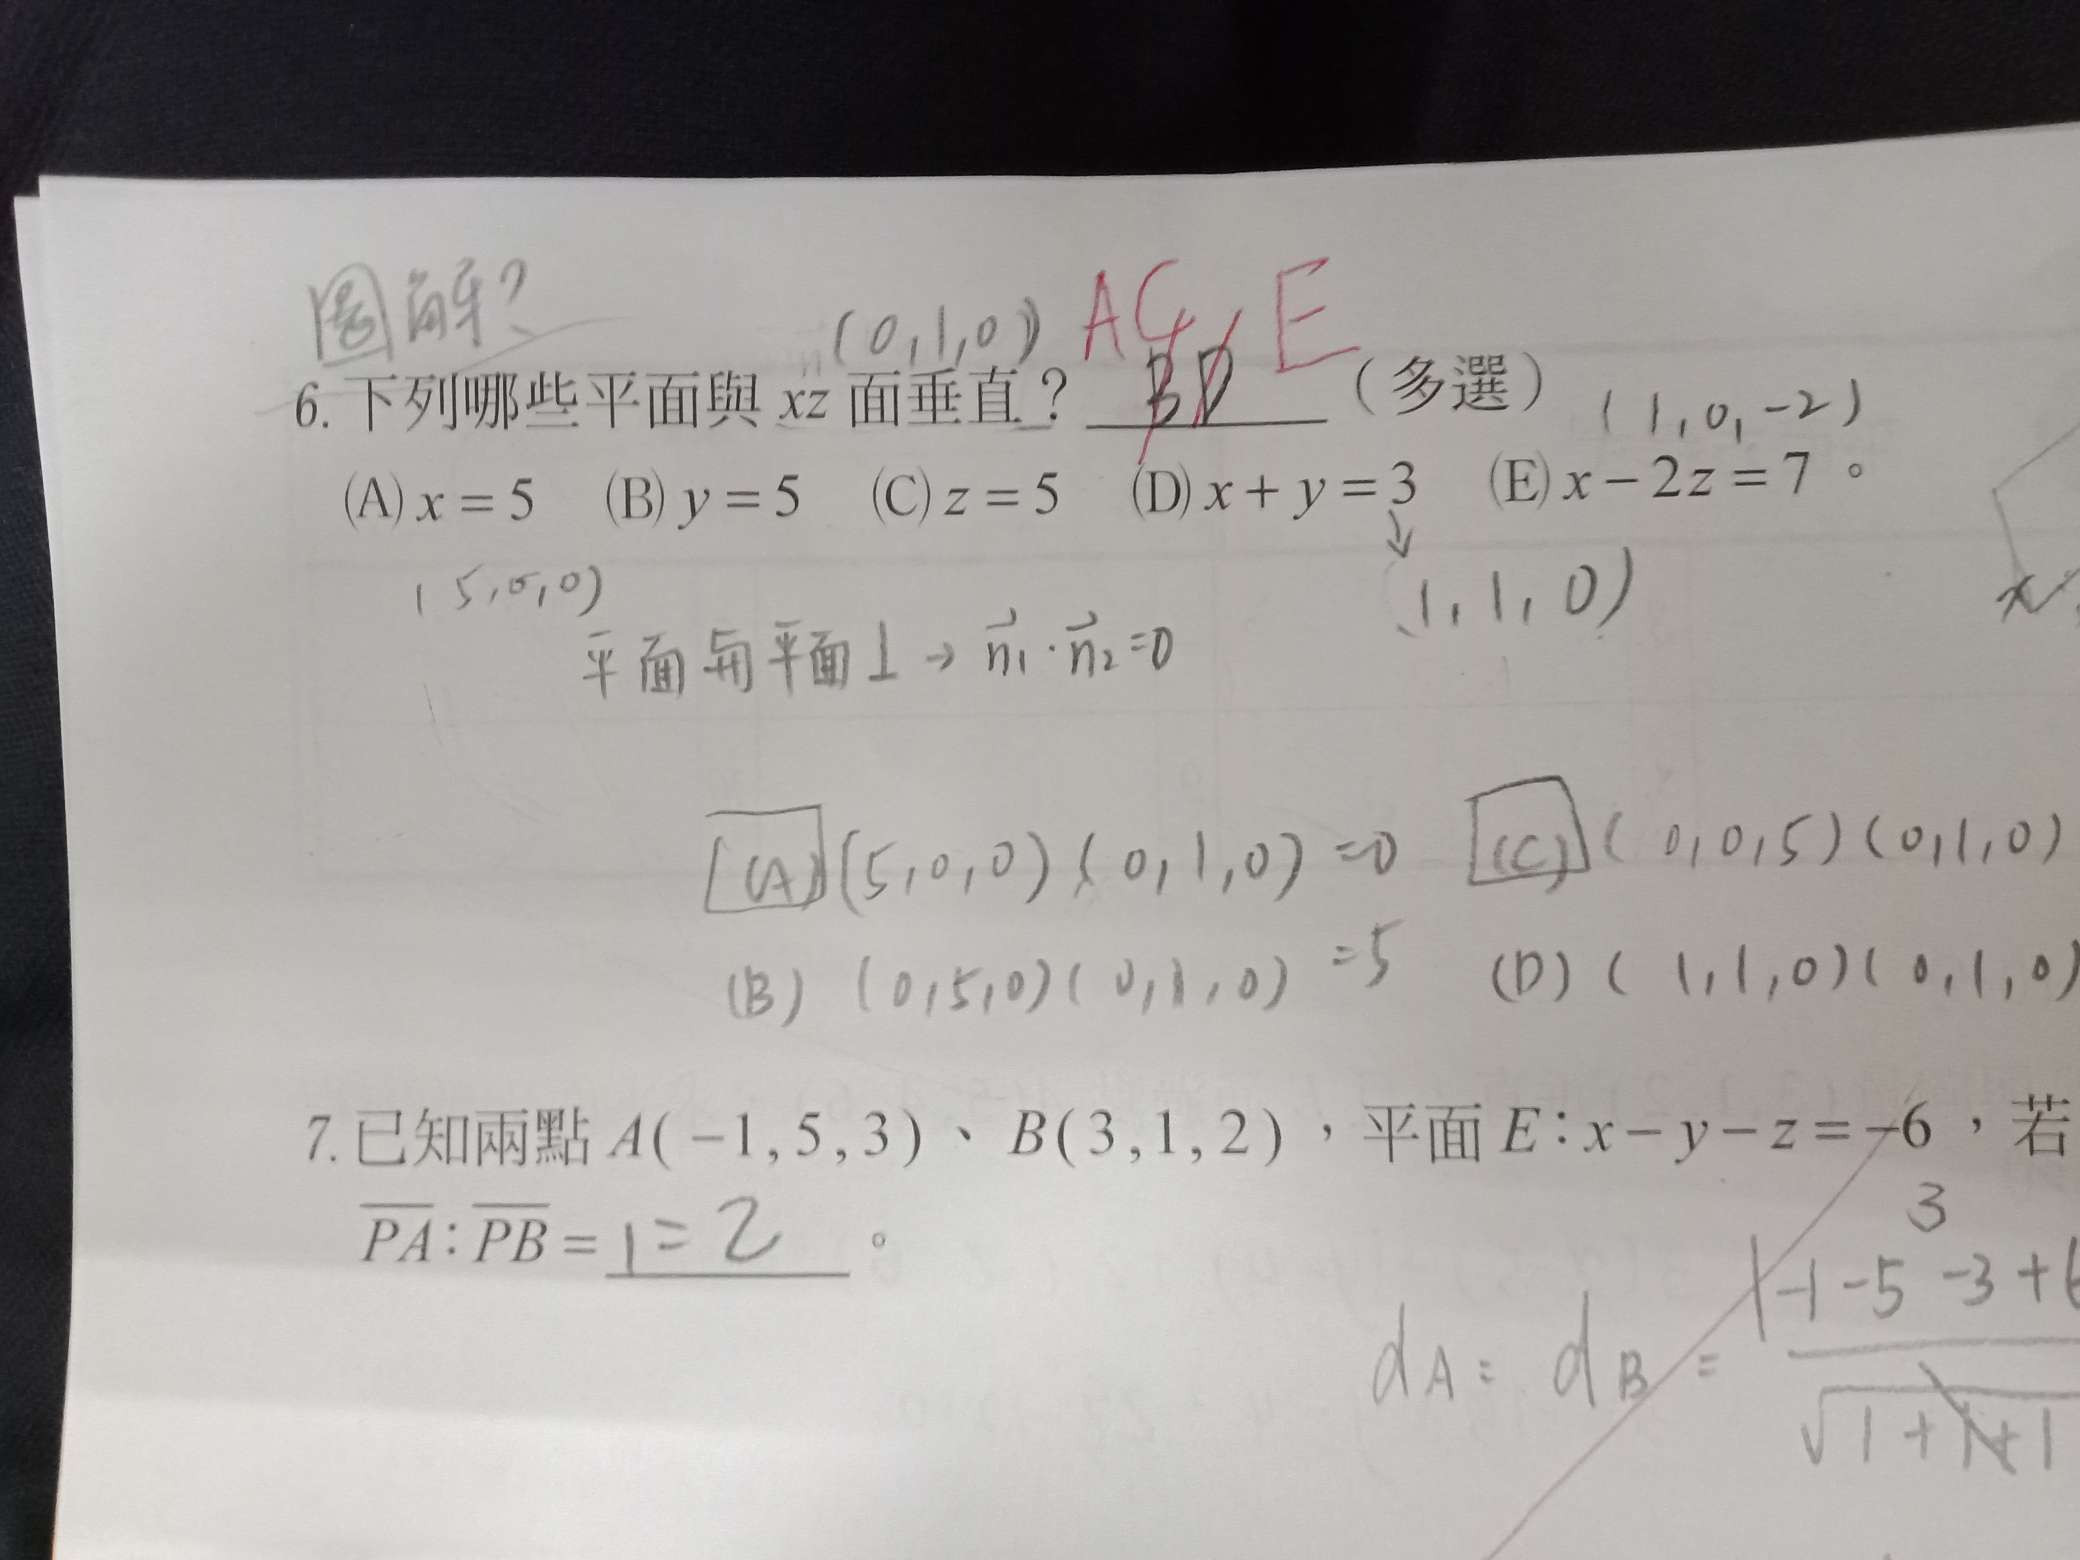 圖解?
(0,1,0) AC, E
6. 下列哪些平面與 xz 面垂直? BD (多選) (1,0,-2)
(A) x = 5 (B) y = 5 (C) z = 5 (D) x + y = 3 (E) x - 2z = 7。
(5,0,0) ↓ (1,1,0)
平面與平面⊥→ n₁⃗·n₂⃗=0
x
(A) (5,0,0)(0,1,0)=0 (C) (0,0,5)(0,1,0)
(B) (0,5,0)(0,1,0)=5 (D) (1,1,0)(0,1,0)
7. 已知兩點 A(-1,5,3)、B(3,1,2),平面 E:x-y-z=-6,若
PA:PB= 1=2 。
3
dA= dB= |-1-5-3+6
√1+1+1